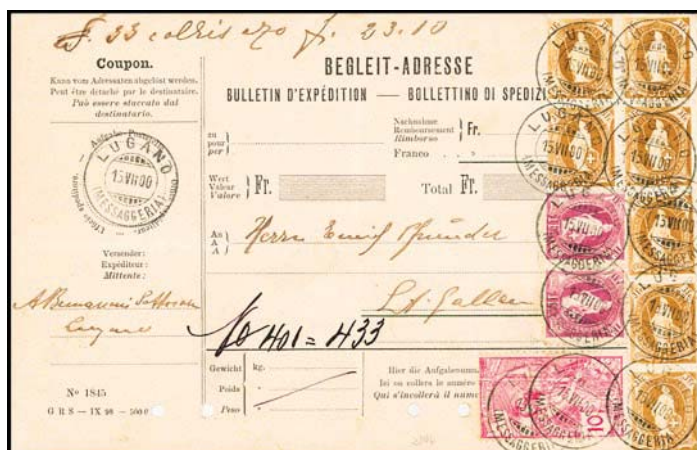 F. 33 collis a 70 fr. 23.10
Coupon.
Kann vom Adressaten abgelöst werden.
Peut être détaché par le destinataire.
Può essere staccato dal
destinatario.
LUGANO
15 VII 00
(MESSAGGERIA)
Versender:
Expéditeur:
Mittente:
No 1845
G R S — IX 98 — 500 0
BEGLEIT-ADRESSE
BULLETIN D'EXPÉDITION — BOLLETTINO DI SPEDIZI
zu
pour
per
Nachnahme
Remboursement
Rimborso
Fr.
Franco
Wert
Valeur
Valore
Fr.
Total Fr.
An
A
A
Herrn Emil
St. Gallen
No 401 = 433
Gewicht
Poids
Peso
kg.
Hier die Aufgabenum
Ici on collera le numéro
Qui s'incollerà il nume
LUGANO
15 VII 00
(MESSAGGERIA)
10